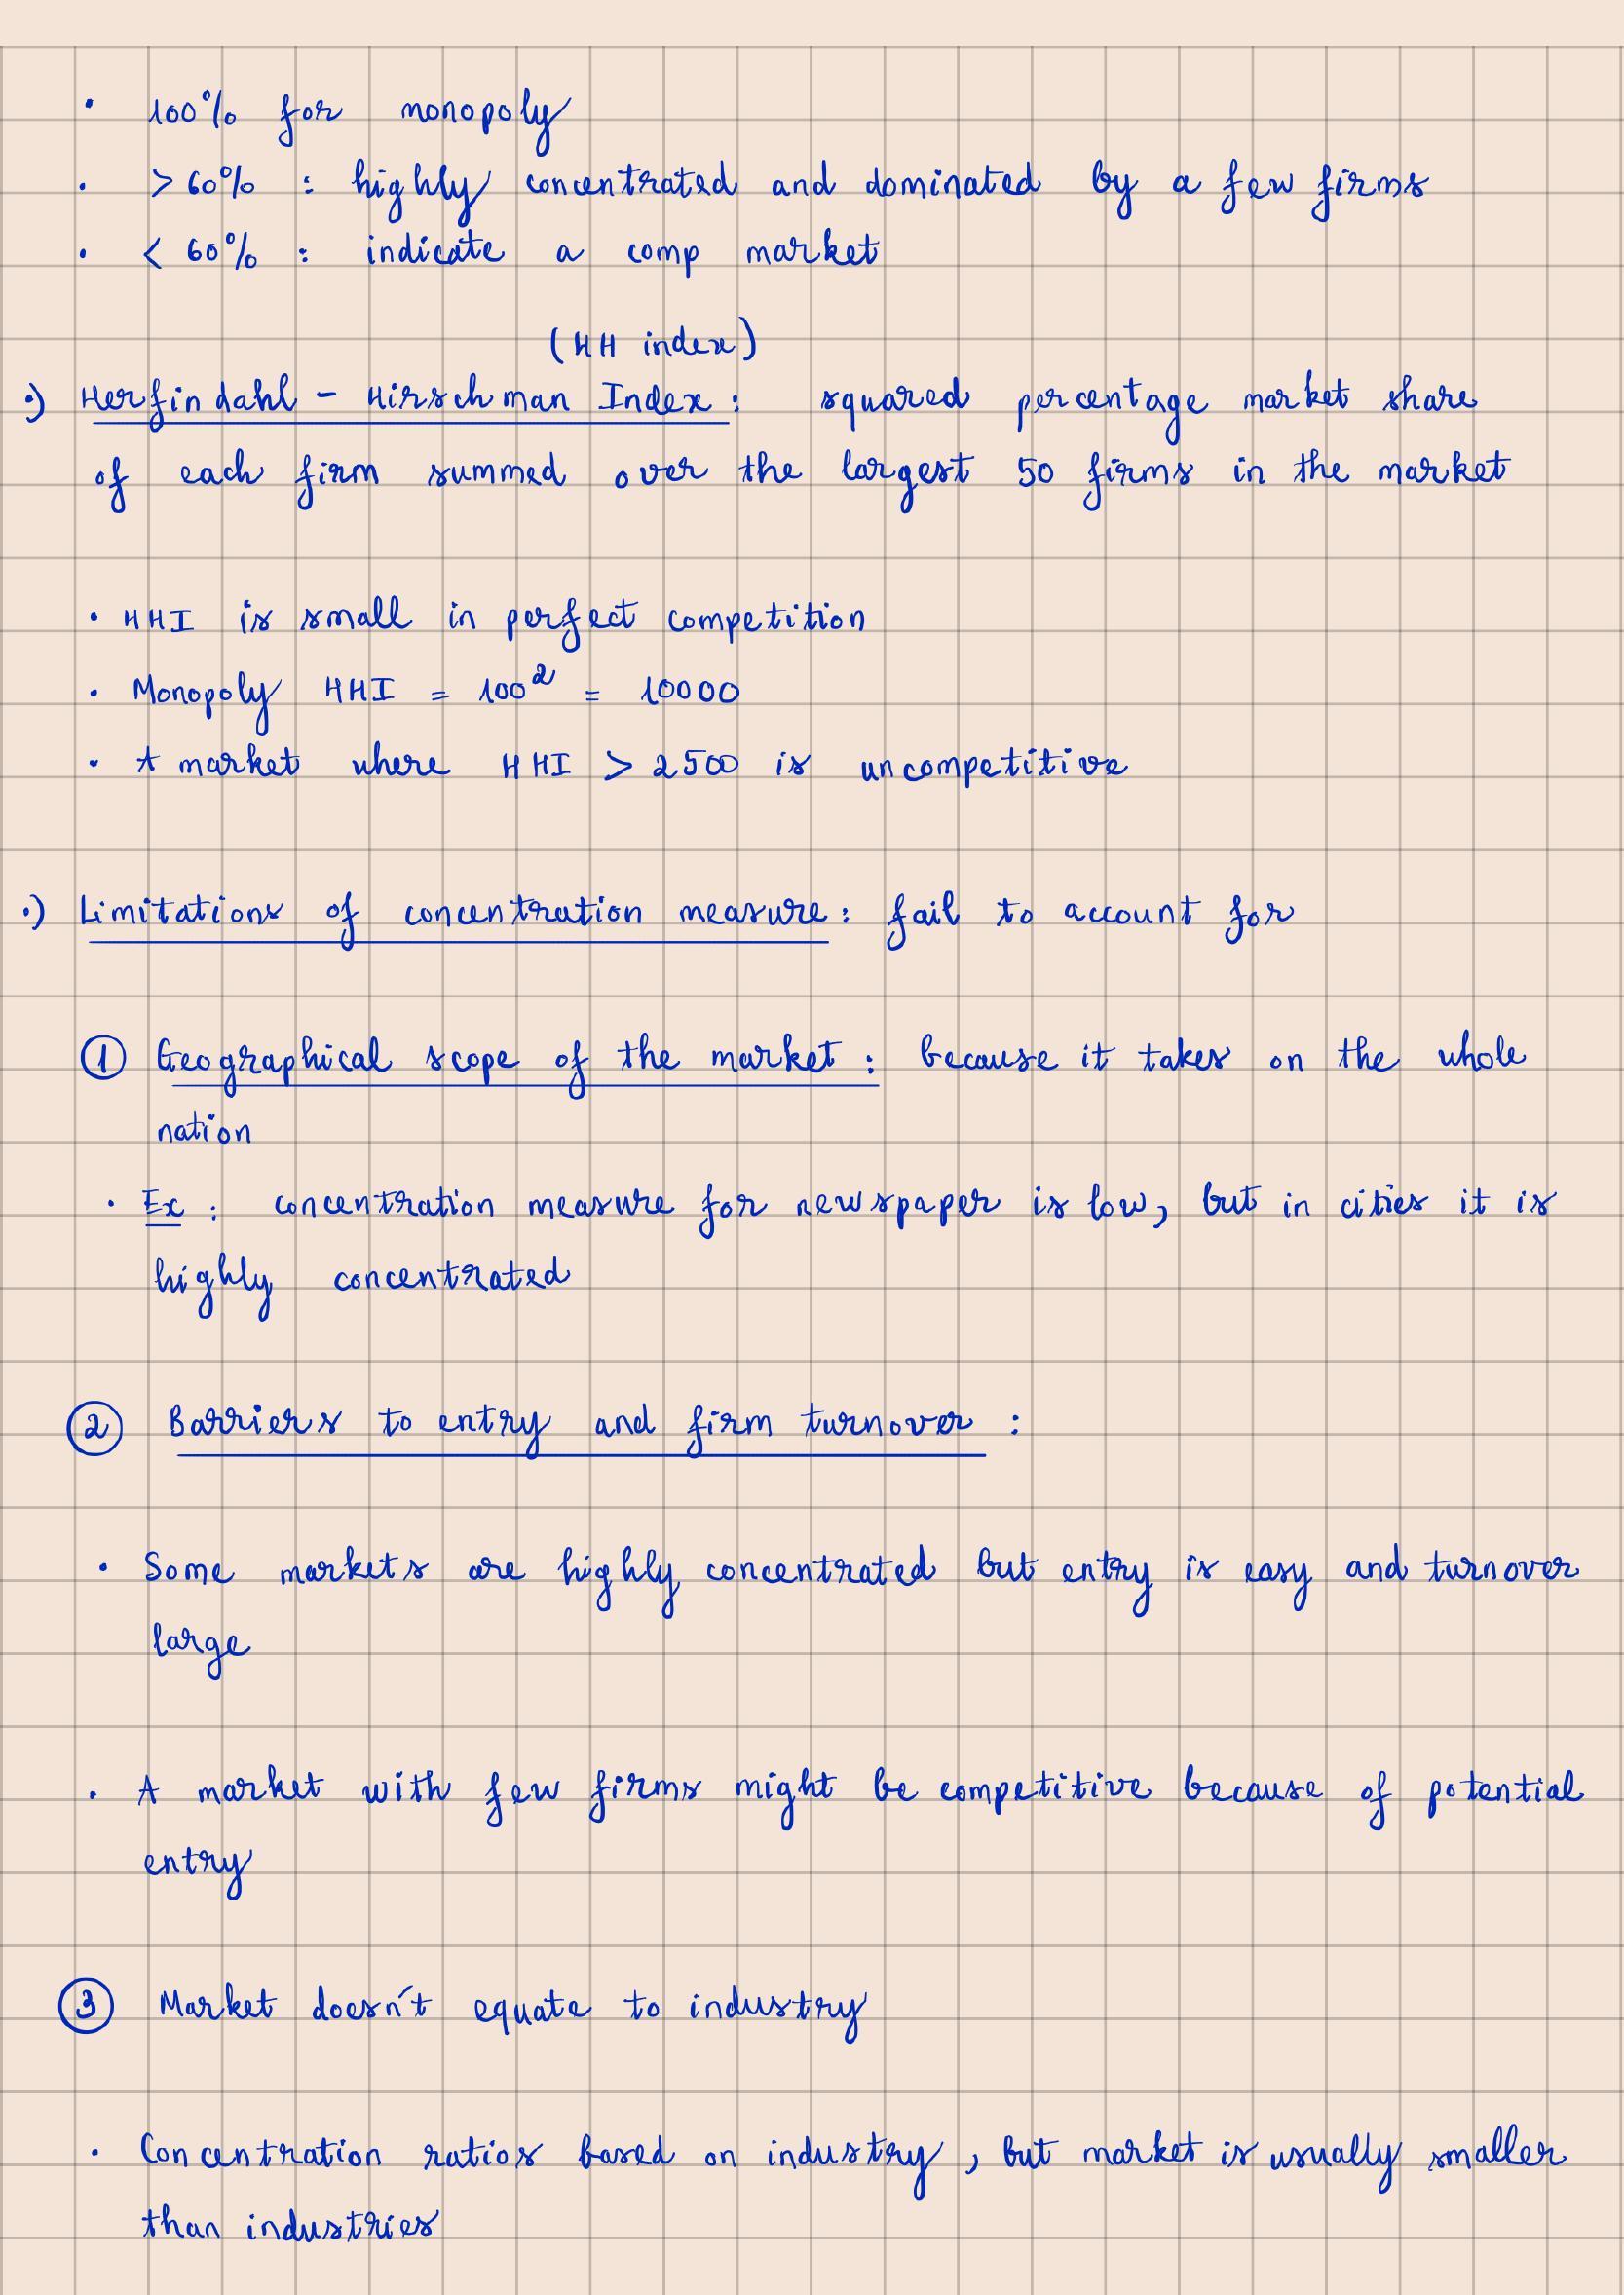 • 100% for monopoly
• > 60% : highly concentrated and dominated by a few firms
• < 60% : indicate a comp market
(HH index)
•) Herfindahl - Hirschman Index : squared percentage market share
of each firm summed over the largest 50 firms in the market
• HHI is small in perfect competition
• Monopoly HHI = 100² = 10000
• A market where HHI > 2500 is uncompetitive
•) Limitations of concentration measure : fail to account for
① Geographical scope of the market : because it takes on the whole
nation
• Ex : concentration measure for newspaper is low, but in cities it is
highly concentrated
② Barriers to entry and firm turnover :
• Some markets are highly concentrated but entry is easy and turnover
large
• A market with few firms might be competitive because of potential
entry
③ Market doesn't equate to industry
• Concentration ratios based on industry, but market is usually smaller
than industries